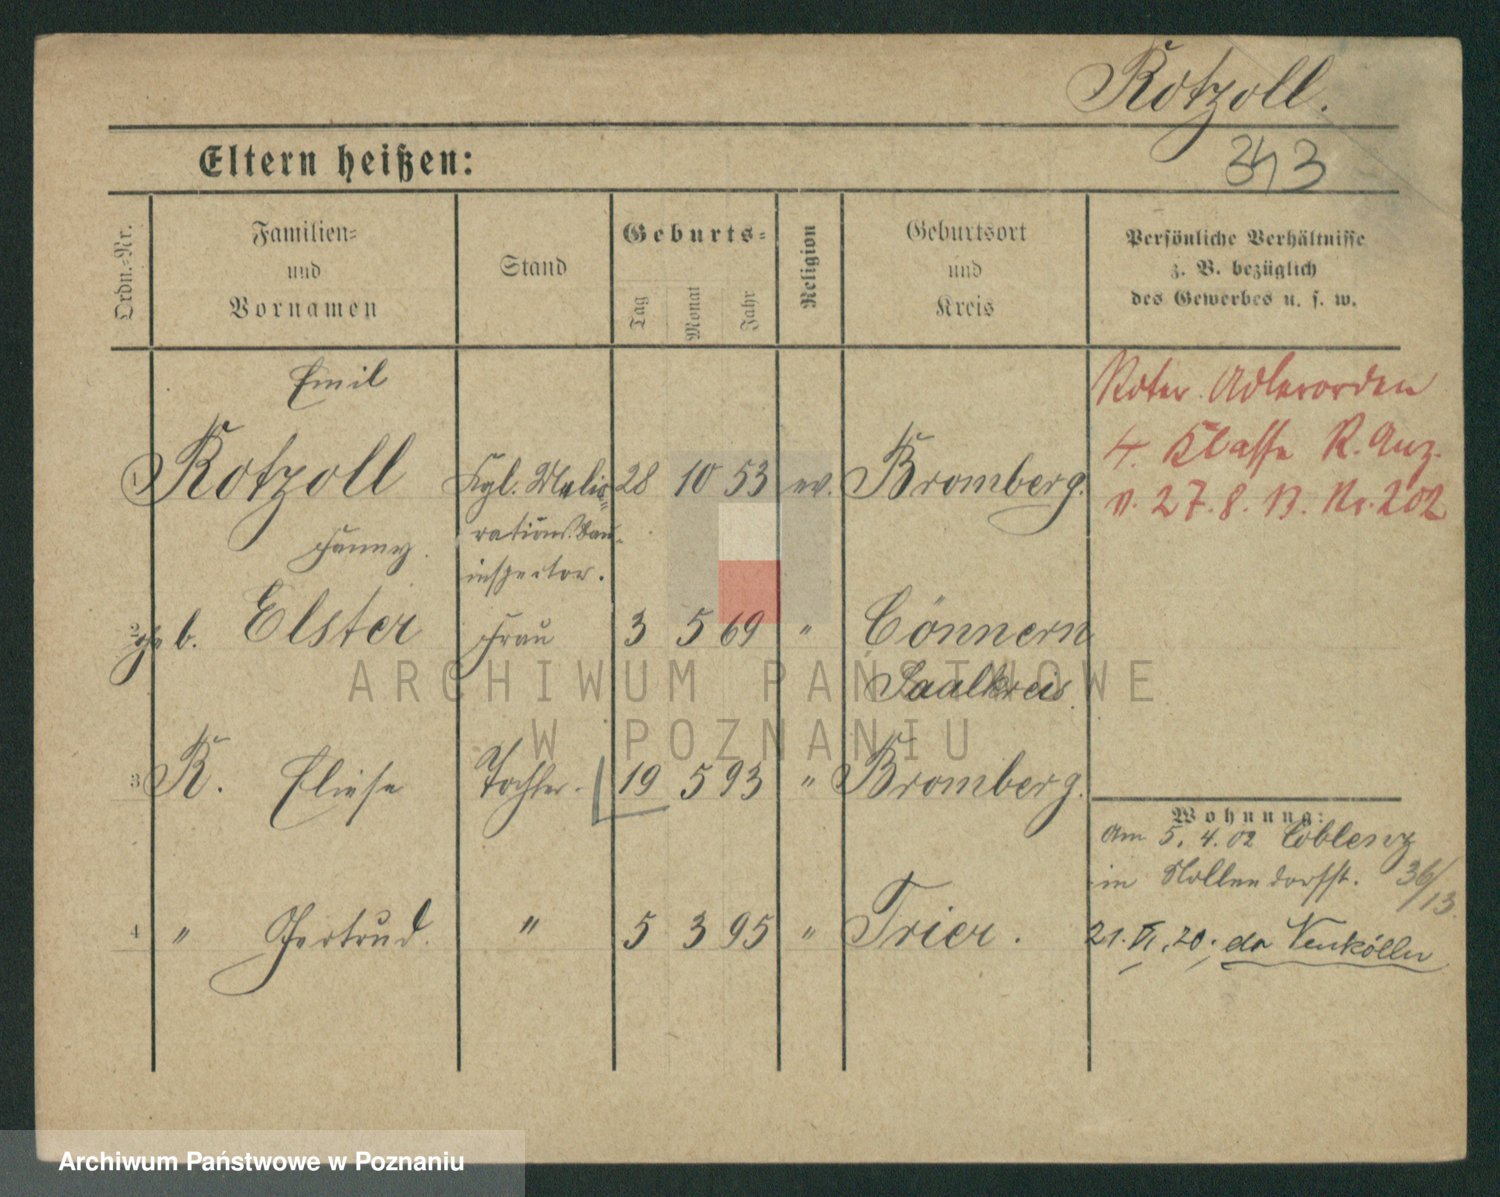 Rotzoll.
Eltern heißen:
343
Ordn.-Nr.
Familien-
und
Vornamen
Stand
Geburts-
Tag
Monat
Jahr
Religion
Geburtsort
und
Kreis
Persönliche Verhältnisse
z. B. bezüglich
des Gewerbes u. s. w.
Emil
1 Rotzoll Kgl. Melio- 28 10 53 ev. Bromberg.
rations.Bau-
inspector.
Roter Adlerorden
4. Klasse R. Anz.
v. 27.8.13. Nr. 202
Fanny
2 geb. Elster Frau 3 5 69 " Cönnern
Saalkreis.
3 R. Eliese Tochter. 19 5 93 " Bromberg.
Wohnung:
Am 5. 4. 02 Coblenz
in Nollendorfst. 36/13.
4 " Gertrud. " 5 3 95 " Trier.
21. VI. 20. do Neukölln
ARCHIWUM PAŃSTWOWE
W POZNANIU
Archiwum Państwowe w Poznaniu